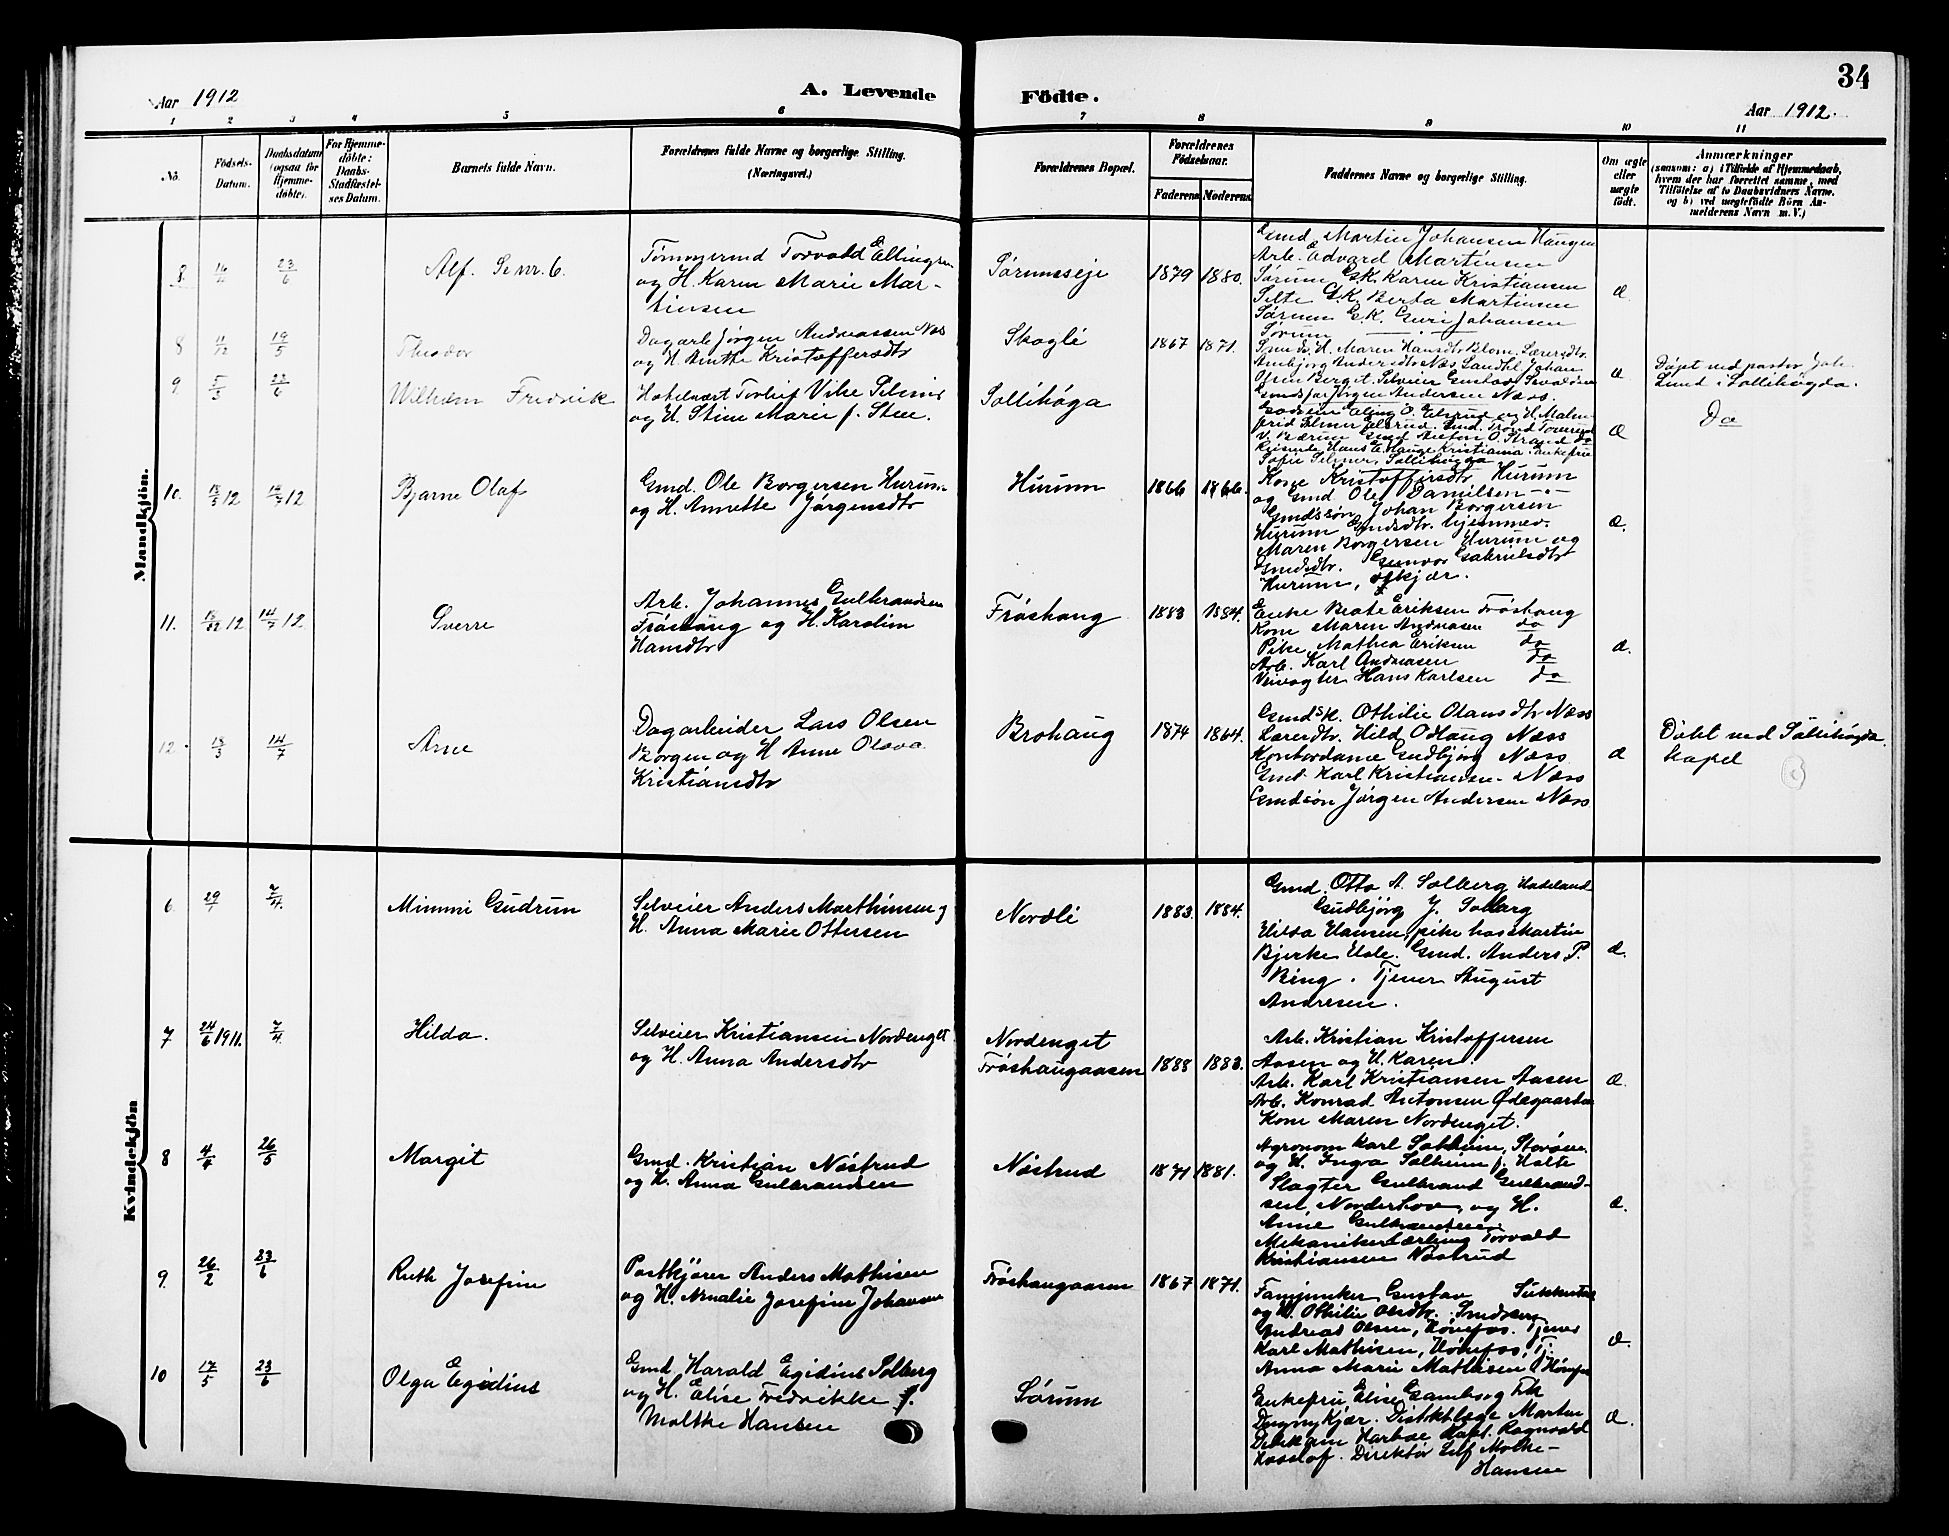 34
Aar 1912
A. Levende
Födte.
Aar 1912.
1 2 3 4 5 6 7 8 9 10 11
No.
Födsels-
Datum.
Daabsdatum
(ogsaa for
Hjemme-
döbte).
For Hjemme-
döbte:
Daabs-
Stadfæstel-
ses Datum.
Barnets fulde Navn.
Forældrenes fulde Navne og borgerlige Stilling.
(Næringsvei.)
Forældrenes Bopæl.
Forældrenes
Födselsaar.
Faderens
Moderens
Faddernes Navne og borgerlige Stilling.
Om ægte
eller
uægte
født.
Anmærkninger
(saasom: a) i Tilfælde af Hjemmedaab,
hvem der har forrettet samme, med
Tilføielse af to Daabsvidners Navne,
og b) ved uægtefødte Börn An-
melderens Navn m. V.)
Mandkjön.
8. 23/6
Alf. Se nr. 6.
Tømmermd Torvald Ellingsen
og H. Karen Marie Mar-
tinsen
Sørumseje
1879 1880.
Gmd. Martin Johansen Haugen
Arb. Edvard Martinsen
Sørum GK. Karen Kristiansen
Selte GK. Berta Martinsen
Sørum G.K. Guri Johansen
Sørum
Æ
8 11/12 19/5
Theodor
Dagarb Jørgen Andreassen Næs
og H. Anthe Kristoffersdtr
Skogli
1867 1871.
Maren Hansdtr Blom, Lærerdtr.
Næs
Johan
Andersen Næss.
Æ
Døpt ved pastor Joh.
Lund i Sollihøgda.
9 5/3 23/6
Wilhelm Fredrik
Hotelvært Torleif Vike Selmer
og H. Stine Marie f. Stee.
Sollihøga
Æ
Do
10. 12 12
Bjarne Olaf
Gmd. Ole Borgersen Hurum
og H. Annette Jørgensdtr
Hurum
1866 1866.
Kone Kristoffersdtr Hurum
og Gmd. Ole Danielsen -"-
Gmdssøn Johan Borgersen
Hurum Gmdsdtr. hjemmev.
Maren Borgersen Hurum og
Gmdsdtr. Gunvor Gabrielsdtr
Hurum,
Æ.
11. 12 14/7 12
Sverre
Arb. Johannes Gulbrandsen
Frøshaug og H. Karoline
Hansdtr
Frøshaug
1883 1884.
Enke Beate Eriksen Frøshaug
Kone Maren Andreasen do
Pike Mathea Eriksen do
Arb. Karl Andreasen do
Veivogter Hans Karlsen do
Æ.
12. 13/3 14/7
Arne
Dagarbeider Lars Olsen
Borgen og H Anne Olava
Kristiansdtr
Brohaug
1874 1864.
Gmdsk. Othilie Olansdtr Næss
Lærerdtr. Hild Odlaug Næss
Kontordame Gudbjørg Næss
Gmd. Karl Kristiansen - Næss
Gmdsøn Jørgen Andersen Næss
Æ
Døbt ved Sollihøgda
Kapel
Kvindekjön
6. 29/1 7/4.
Mimmi Gudrun
Selveier Anders Marthinsen og
H. Anna Marie Ottersen
Nordli
1883. 1884.
Gmd. Otto A. Solberg Hadeland
Gudbjørg J. Solberg
Hilda Hansen, pike hos Martin
Bjerke Hole. Gmd. Anders P.
Bing. Tjener August
Andresen.
Æ.
7 24/6 1911. 7/4
Hilda.
Selveier Kristiansen Nordenget
og H. Anna Andersdtr
Nordenget
Frøshaugaasen
1888 1883.
Arb. Kristian Kristoffersen
Aasen og H. Karen.
Arb. Karl Kristiansen Aasen
Arb. Konrad Antonsen Ødegaarden
Kone Maren Nordenget.
Æ.
8 4/4 26/5
Margit
Gmd. Kristian Nøstrud
og H. Anna Gulbrandsen
Nøstrud
1871 1881.
Agronom Karl Solheim, Storøen
og H. Inga Solheim f. Holte
Slagter Gulbrand Gulbrand-
sen, Norderhov, og H.
Anne Gulbrandsen.
Mekanikerlærling Torvald
Kristiansen Nøstrud
Æ.
9. 26/2 23/6
Ruth Josefine
Postkjører Anders Mathisen
og H. Amalie Josefine Johansen
Frøshaugaasen
1867 1871.
Fanejunker Gustav
og H. Othilie Olsdtr.
Andreas Olsen, Hønefos. Tjener
Karl Mathisen, Hønefos, Tj.
Anna Marie Mathisen, Hønefos
Æ.
10 17/5 23/6
Olga Egidius
Gmd. Harald Egidius Solberg
og H. Elise Fredrikke f.
Moltke Hansen
Sørum
Enkefru Elise Gamborg Frk
Dagny Kjær. Distriktslæge Morten
Harboe Kapt. Ragnvald
Direktør Leif Molke-
Hansen
Æ.